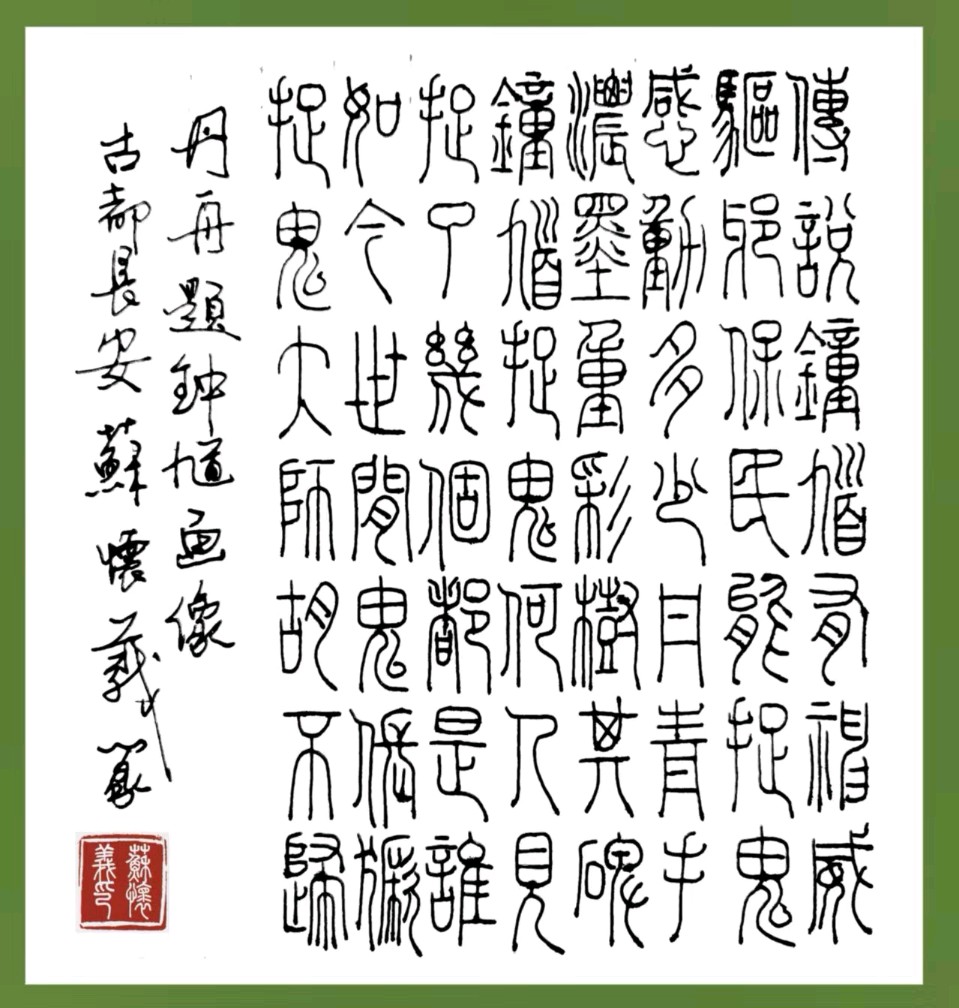 傳說鐘馗有神威
驅邪保民能捉鬼
感動多少丹青手
濃墨重彩樹其碑
鐘馗捉鬼何人見
捉了幾個都是誰
如今世間鬼倀獗
捉鬼大師胡不歸
丹題鈡馗画像
古都長安蘇懷義篆
蘇懷義印